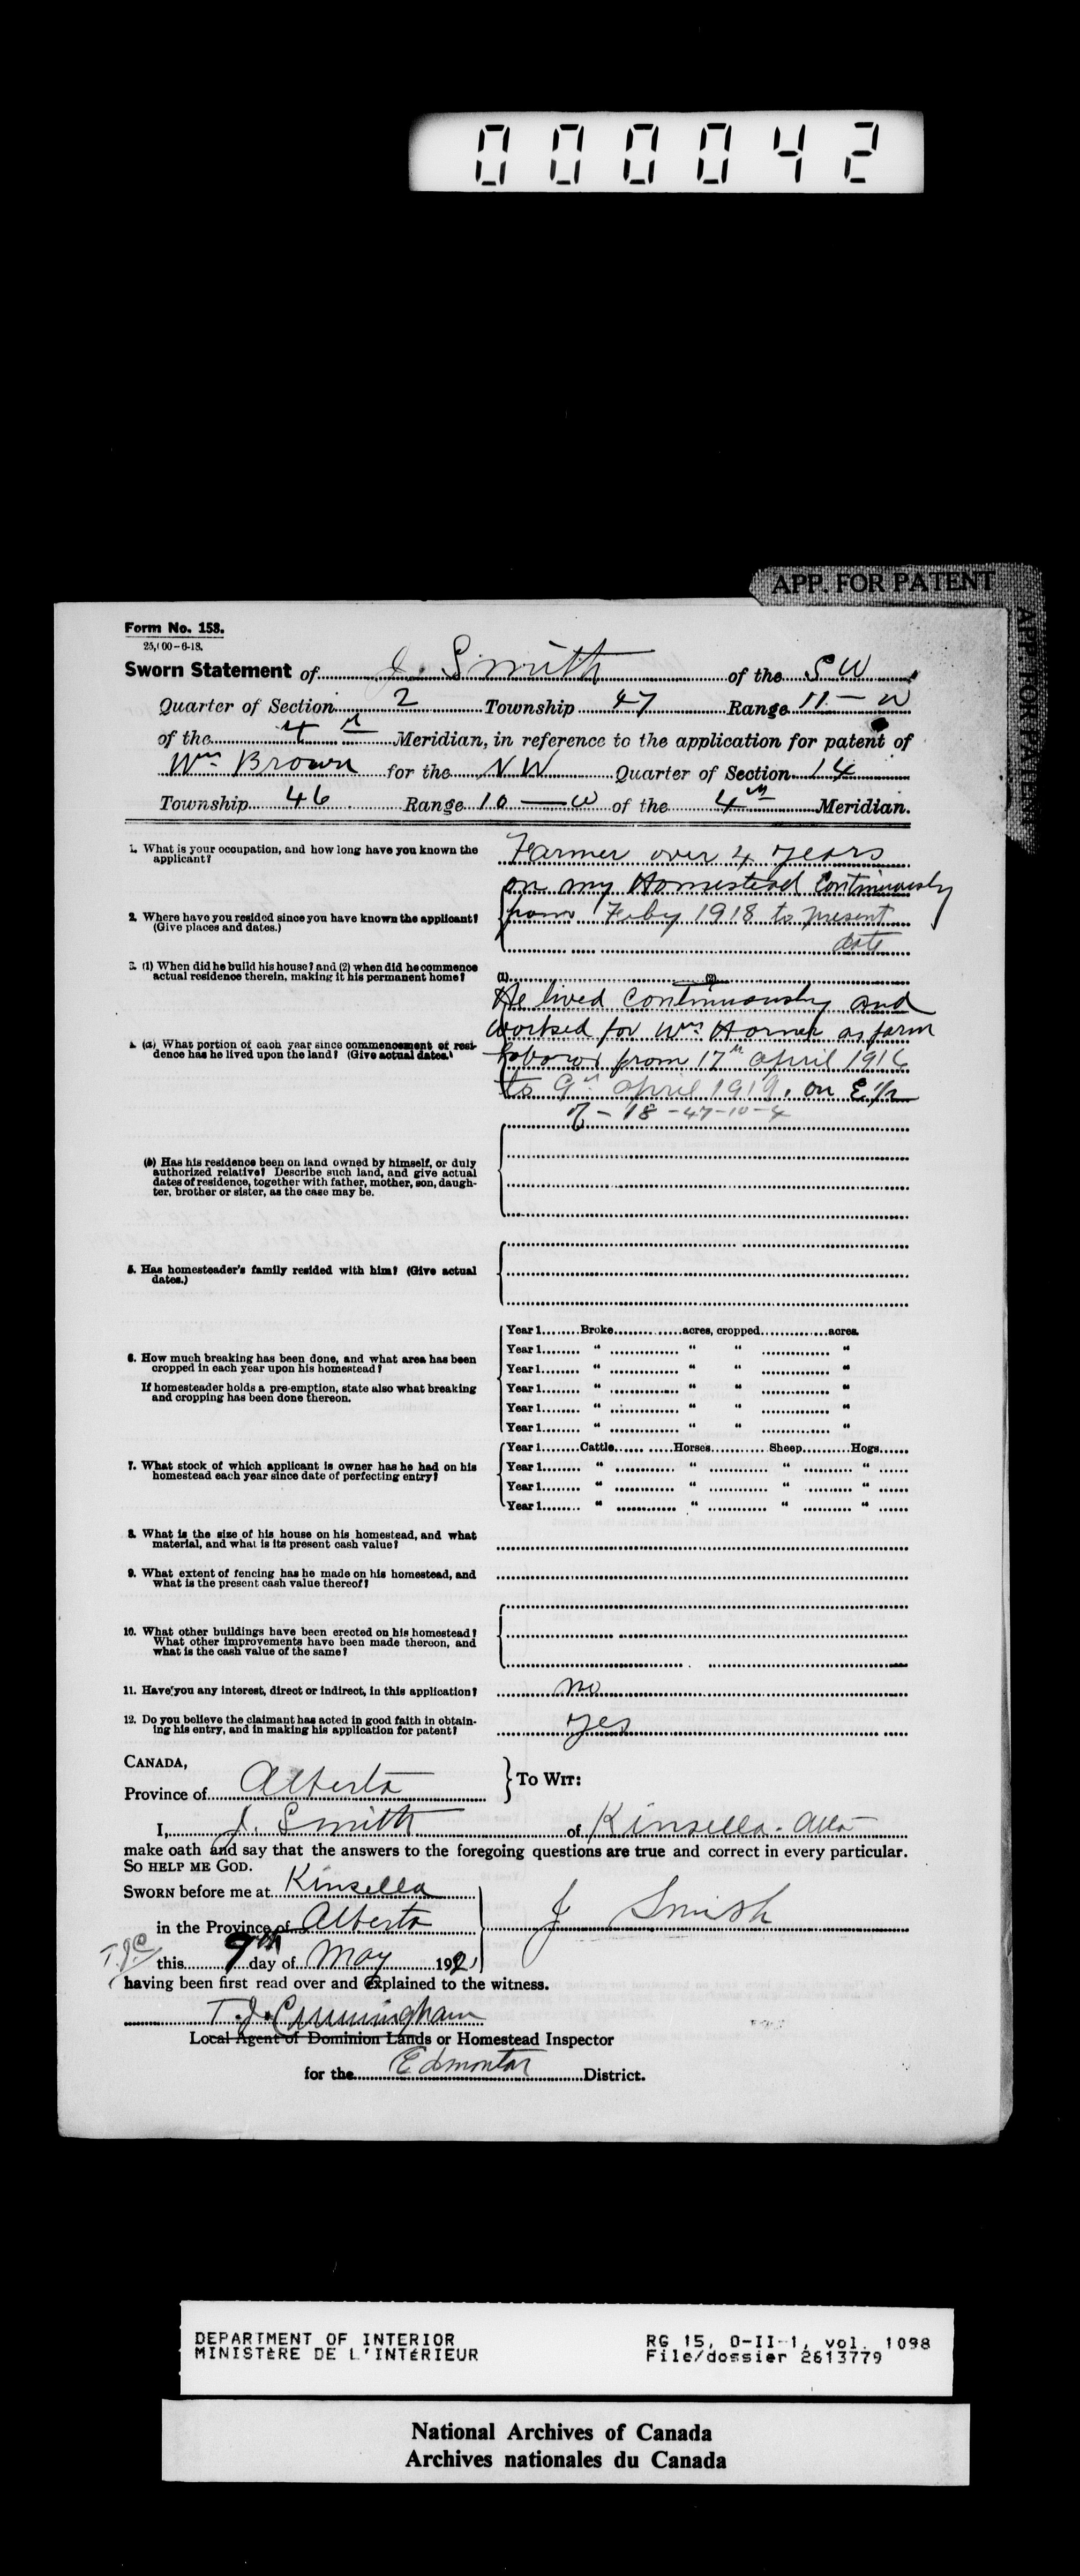 000042
APP. FOR PATENT
APP. FOR PATENT
Form No. 153.
25,000-6-18.
Sworn Statement of J. Smith of the S W
Quarter of Section 2 Township 47 Range 11 — W
of the 4th Meridian, in reference to the application for patent of
Wm Brown for the NW Quarter of Section 14
Township 46 Range 10 — W of the 4th Meridian.
1. What is your occupation, and how long have you known the
applicant?
Farmer over 4 years
2. Where have you resided since you have known the applicant?
(Give places and dates.)
on my Homestead Continuously
from Feby 1918 to present
date
3. (1) When did he build his house? and (2) when did he commence
actual residence therein, making it his permanent home?
(1) (2)
4. (a) What portion of each year since commencement of resi-
dence has he lived upon the land? (Give actual dates.)
He lived continuously and
worked for Wm Horner as farm
laborer from 17th april 1916
to 9th april 1919, on E 1/2
of - 18 - 47-10-4
(b) Has his residence been on land owned by himself, or duly
authorized relative? Describe such land, and give actual
dates of residence, together with father, mother, son, daugh-
ter, brother or sister, as the case may be.
5. Has homesteader's family resided with him? (Give actual
dates.)
6. How much breaking has been done, and what area has been
cropped in each year upon his homestead?
If homesteader holds a pre-emption, state also what breaking
and cropping has been done thereon.
Year 1 Broke acres, cropped acres.
Year 1 " " " "
Year 1 " " " "
Year 1 " " " "
Year 1 " " " "
Year 1 " " " "
7. What stock of which applicant is owner has he had on his
homestead each year since date of perfecting entry?
Year 1 Cattle Horses Sheep Hogs
Year 1 " " " "
Year 1 " " " "
Year 1 " " " "
8. What is the size of his house on his homestead, and what
material, and what is its present cash value?
9. What extent of fencing has he made on his homestead, and
what is the present cash value thereof?
10. What other buildings have been erected on his homestead?
What other improvements have been made thereon, and
what is the cash value of the same?
11. Have you any interest, direct or indirect, in this application?
no
12. Do you believe the claimant has acted in good faith in obtain-
ing his entry, and in making his application for patent?
yes
CANADA,
Province of Alberta } TO WIT:
I, J. Smith of Kinsella. Alta
make oath and say that the answers to the foregoing questions are true and correct in every particular.
SO HELP ME GOD.
SWORN before me at Kinsella
in the Province of Alberta
J Smith
T.J.C. this 9th day of May 1921
having been first read over and explained to the witness.
T. J. Cunningham
Local Agent of Dominion Lands or Homestead Inspector
for the Edmonton District.
DEPARTMENT OF INTERIOR
MINISTÈRE DE L'INTÉRIEUR
RG 15, D-II-1, vol. 1098
File/dossier 2613779
National Archives of Canada
Archives nationales du Canada